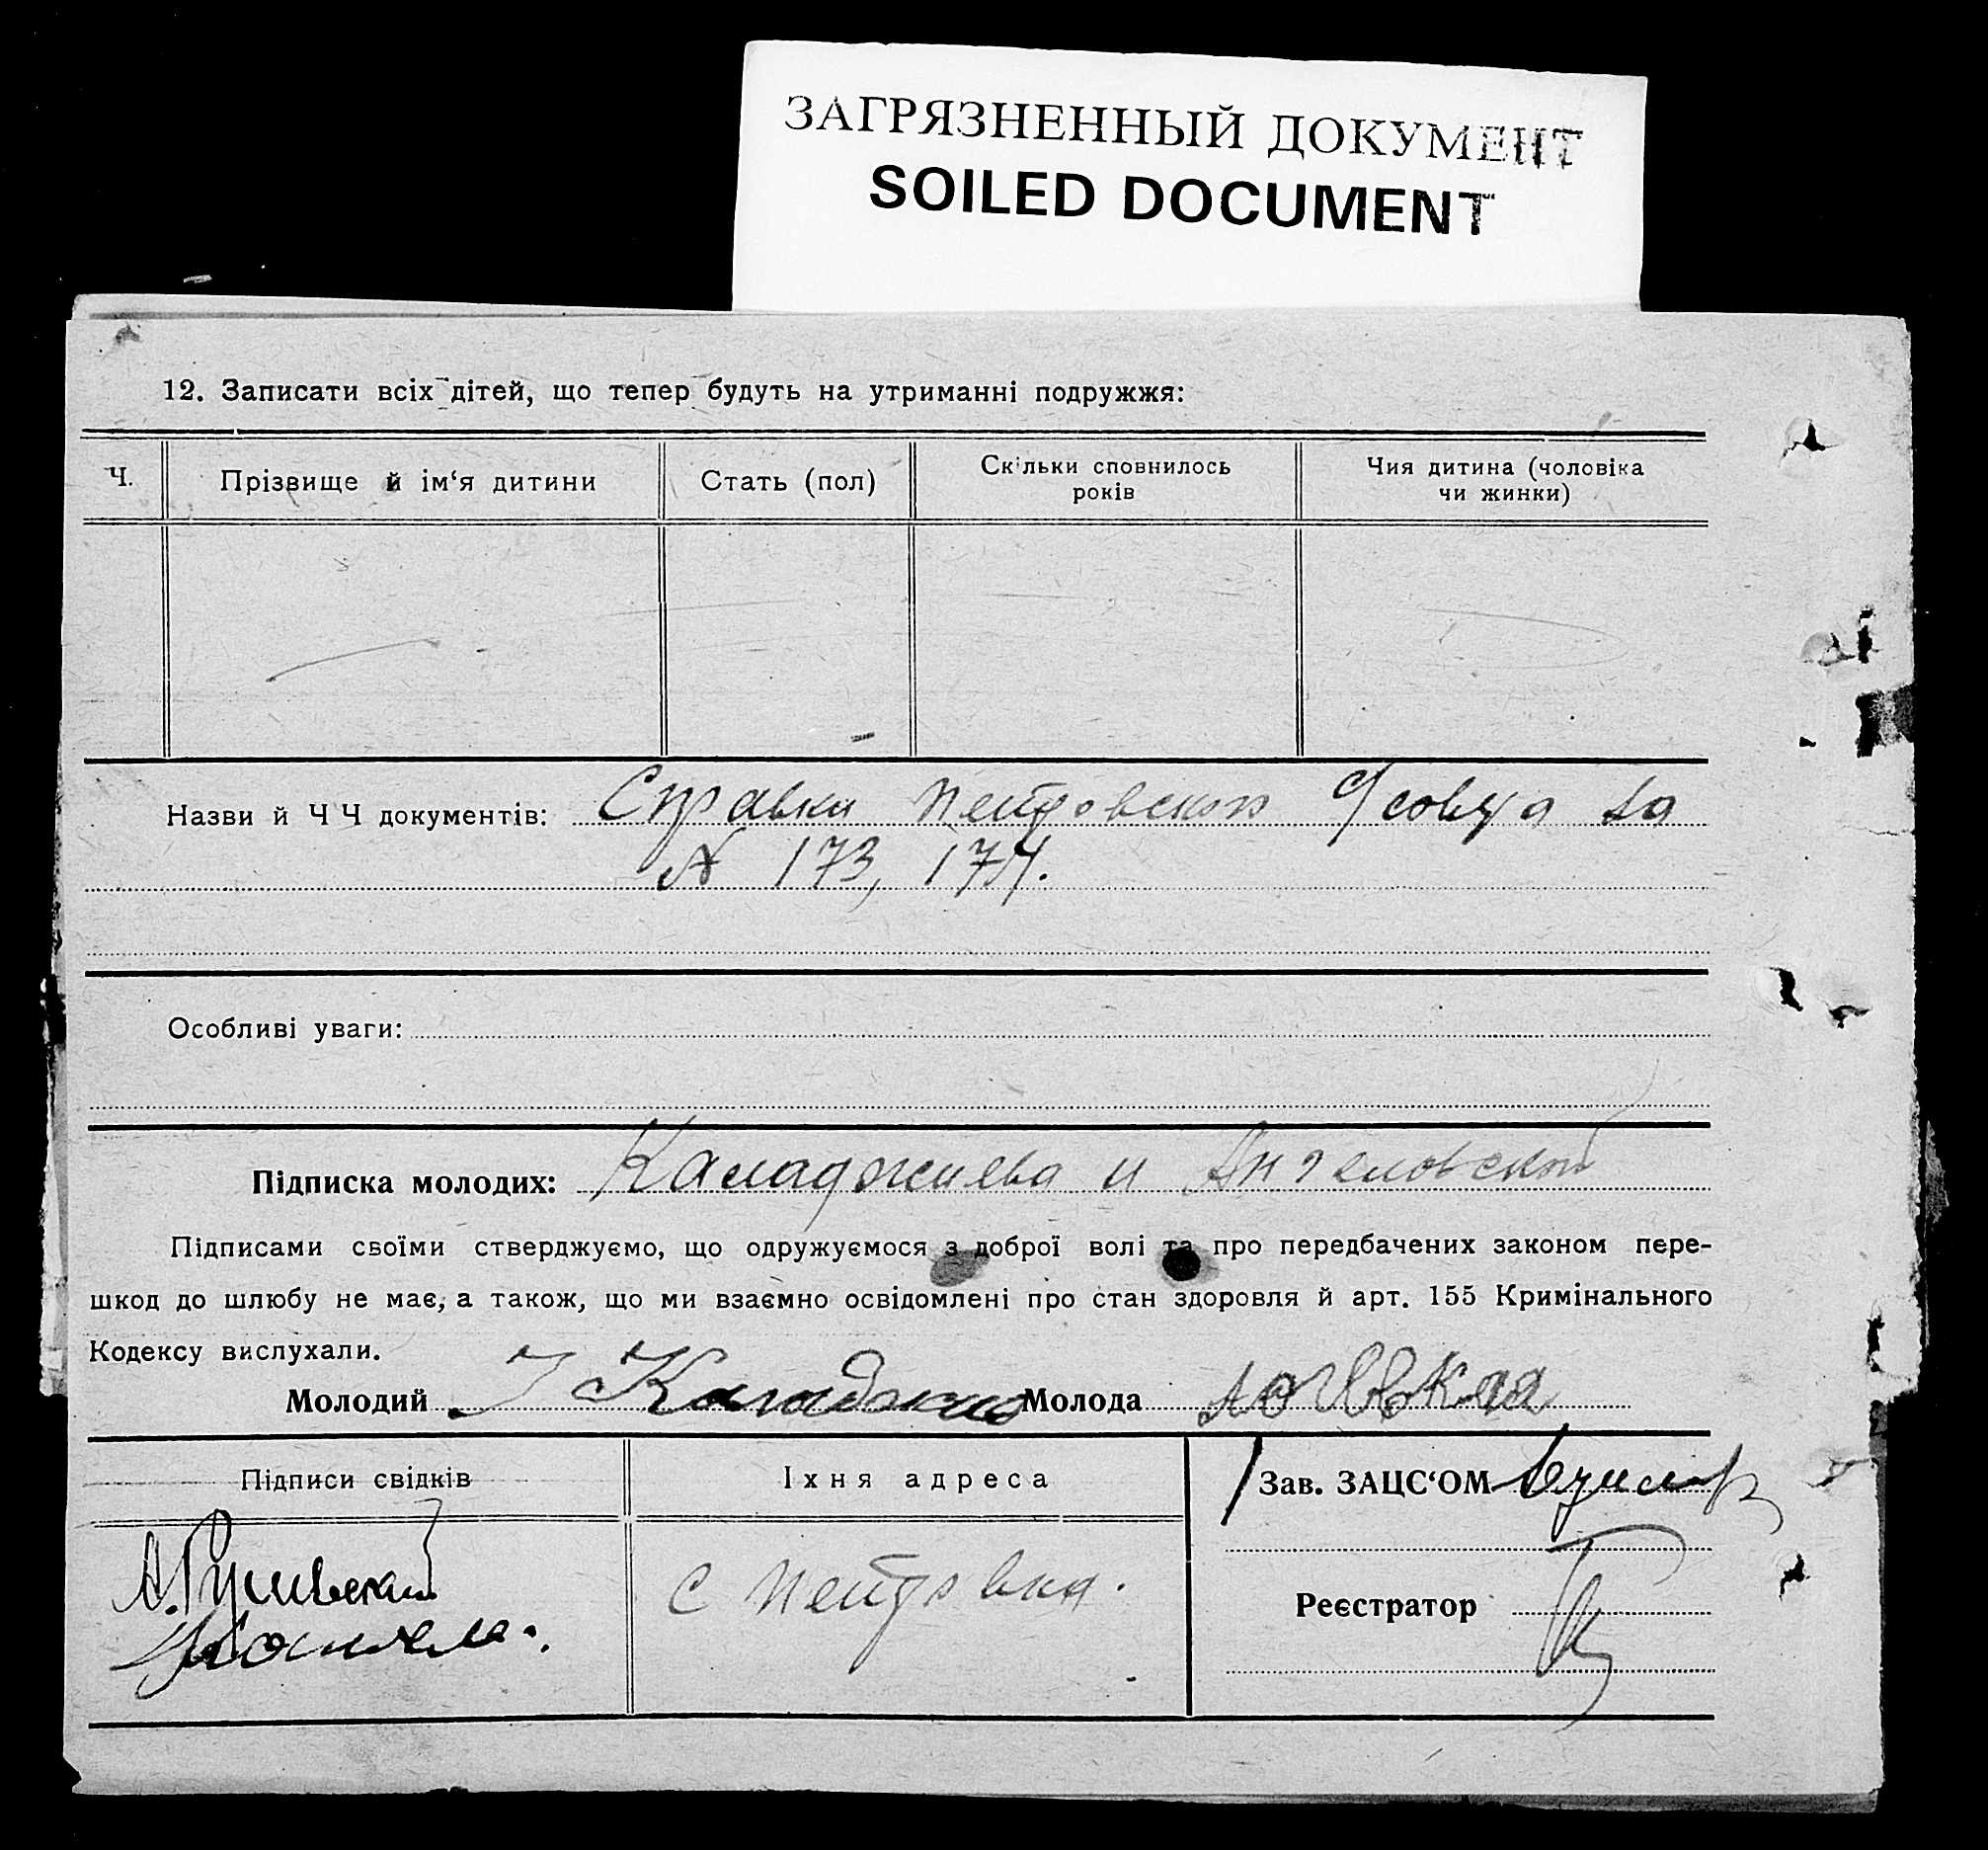 ЗАГРЯЗНЕННЫЙ ДОКУМЕНТ
SOILED DOCUMENT
12. Записати всіх дітей, що тепер будуть на утриманні подружжя:
Ч. Прізвище й ім‘я дитини Стать (пол) Скільки сповнилось років Чия дитина (чоловіка чи жинки)
Назви й ЧЧ документів: Справки Петровского с/совета за
№ 173, 174.
Особливі уваги:
Підписка молодих: Каладжиева и Ангеловской
Підписами своїми стверджуємо, що одружуємося з доброї волі та про передбачених законом пере-
шкод до шлюбу не має, а також, що ми взаємно освідомлені про стан здоровля й арт. 155 Кримінального
Кодексу вислухали.
Молодий Молода
Підписи свідків Їхня адреса Зав. ЗАЦС‘ОМ
с Петровка.
Реєстратор